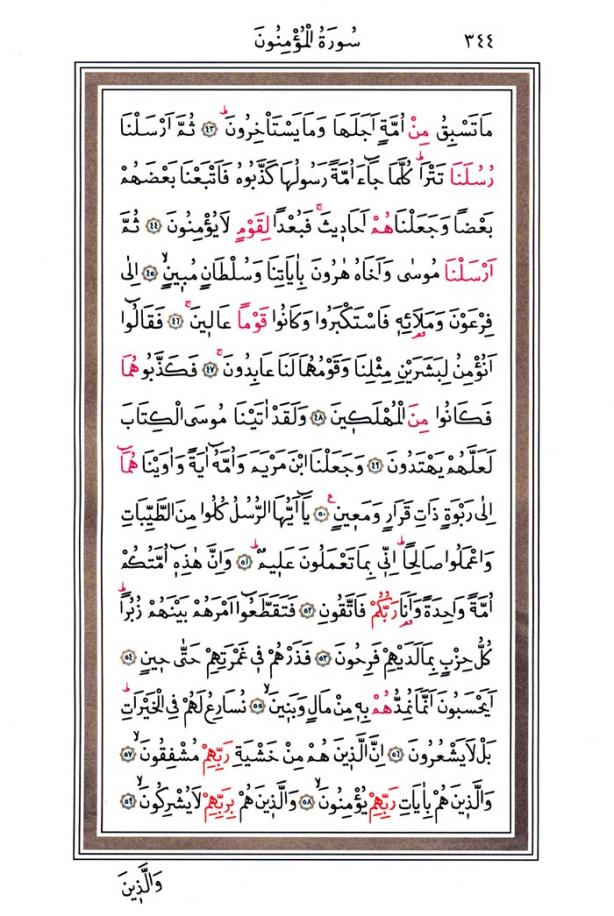 ٣٤٤ سُورَةُ الْمُؤْمِنُونَ
مَا تَسْبِقُ مِنْ اُمَّةٍ اَجَلَهَا وَمَا يَسْتَاْخِرُونَۜ ﴿٤٣﴾ ثُمَّ اَرْسَلْنَا
رُسُلَنَا تَتْرَاۜ كُلَّمَا جَٓاءَ اُمَّةً رَسُولُهَا كَذَّبُوهُ فَاَتْبَعْنَا بَعْضَهُمْ
بَعْضًا وَجَعَلْنَاهُمْ اَحَاد۪يثَۚ فَبُعْدًا لِقَوْمٍ لَا يُؤْمِنُونَ ﴿٤٤﴾ ثُمَّ
اَرْسَلْنَا مُوسٰى وَاَخَاهُ هٰرُونَ بِاٰيَاتِنَا وَسُلْطَانٍ مُب۪ينٍۙ ﴿٤٥﴾ اِلٰى
فِرْعَوْنَ وَمَلَا۬ئِه۪ فَاسْتَكْبَرُوا وَكَانُوا قَوْمًا عَال۪ينَۚ ﴿٤٦﴾ فَقَالُٓوا
اَنُؤْمِنُ لِبَشَرَيْنِ مِثْلِنَا وَقَوْمُهُمَا لَنَا عَابِدُونَۚ ﴿٤٧﴾ فَكَذَّبُوهُمَا
فَكَانُوا مِنَ الْمُهْلَك۪ينَ ﴿٤٨﴾ وَلَقَدْ اٰتَيْنَا مُوسَى الْكِتَابَ
لَعَلَّهُمْ يَهْتَدُونَ ﴿٤٩﴾ وَجَعَلْنَا ابْنَ مَرْيَمَ وَاُمَّهُٓ اٰيَةً وَاٰوَيْنَاهُمَٓا
اِلٰى رَبْوَةٍ ذَاتِ قَرَارٍ وَمَع۪ينٍ۟ ﴿٥٠﴾ يَٓا اَيُّهَا الرُّسُلُ كُلُوا مِنَ الطَّيِّبَاتِ
وَاعْمَلُوا صَالِحًاۜ اِنّ۪ي بِمَا تَعْمَلُونَ عَل۪يمٌۜ ﴿٥١﴾ وَاِنَّ هٰذِه۪ٓ اُمَّتُكُمْ
اُمَّةً وَاحِدَةً وَاَنَا۬ رَبُّكُمْ فَاتَّقُونِ ﴿٥٢﴾ فَتَقَطَّعُٓوا اَمْرَهُمْ بَيْنَهُمْ زُبُرًاۜ
كُلُّ حِزْبٍ بِمَا لَدَيْهِمْ فَرِحُونَ ﴿٥٣﴾ فَذَرْهُمْ ف۪ي غَمْرَتِهِمْ حَتّٰى ح۪ينٍ ﴿٥٤﴾
اَيَحْسَبُونَ اَنَّمَا نُمِدُّهُمْ بِه۪ مِنْ مَالٍ وَبَن۪ينَۙ ﴿٥٥﴾ نُسَارِعُ لَهُمْ فِي الْخَيْرَاتِۜ
بَلْ لَا يَشْعُرُونَ ﴿٥٦﴾ اِنَّ الَّذ۪ينَ هُمْ مِنْ خَشْيَةِ رَبِّهِمْ مُشْفِقُونَۙ ﴿٥٧﴾
وَالَّذ۪ينَ هُمْ بِاٰيَاتِ رَبِّهِمْ يُؤْمِنُونَۙ ﴿٥٨﴾ وَالَّذ۪ينَ هُمْ بِرَبِّهِمْ لَا يُشْرِكُونَۙ ﴿٥٩﴾
وَالَّذ۪ينَ